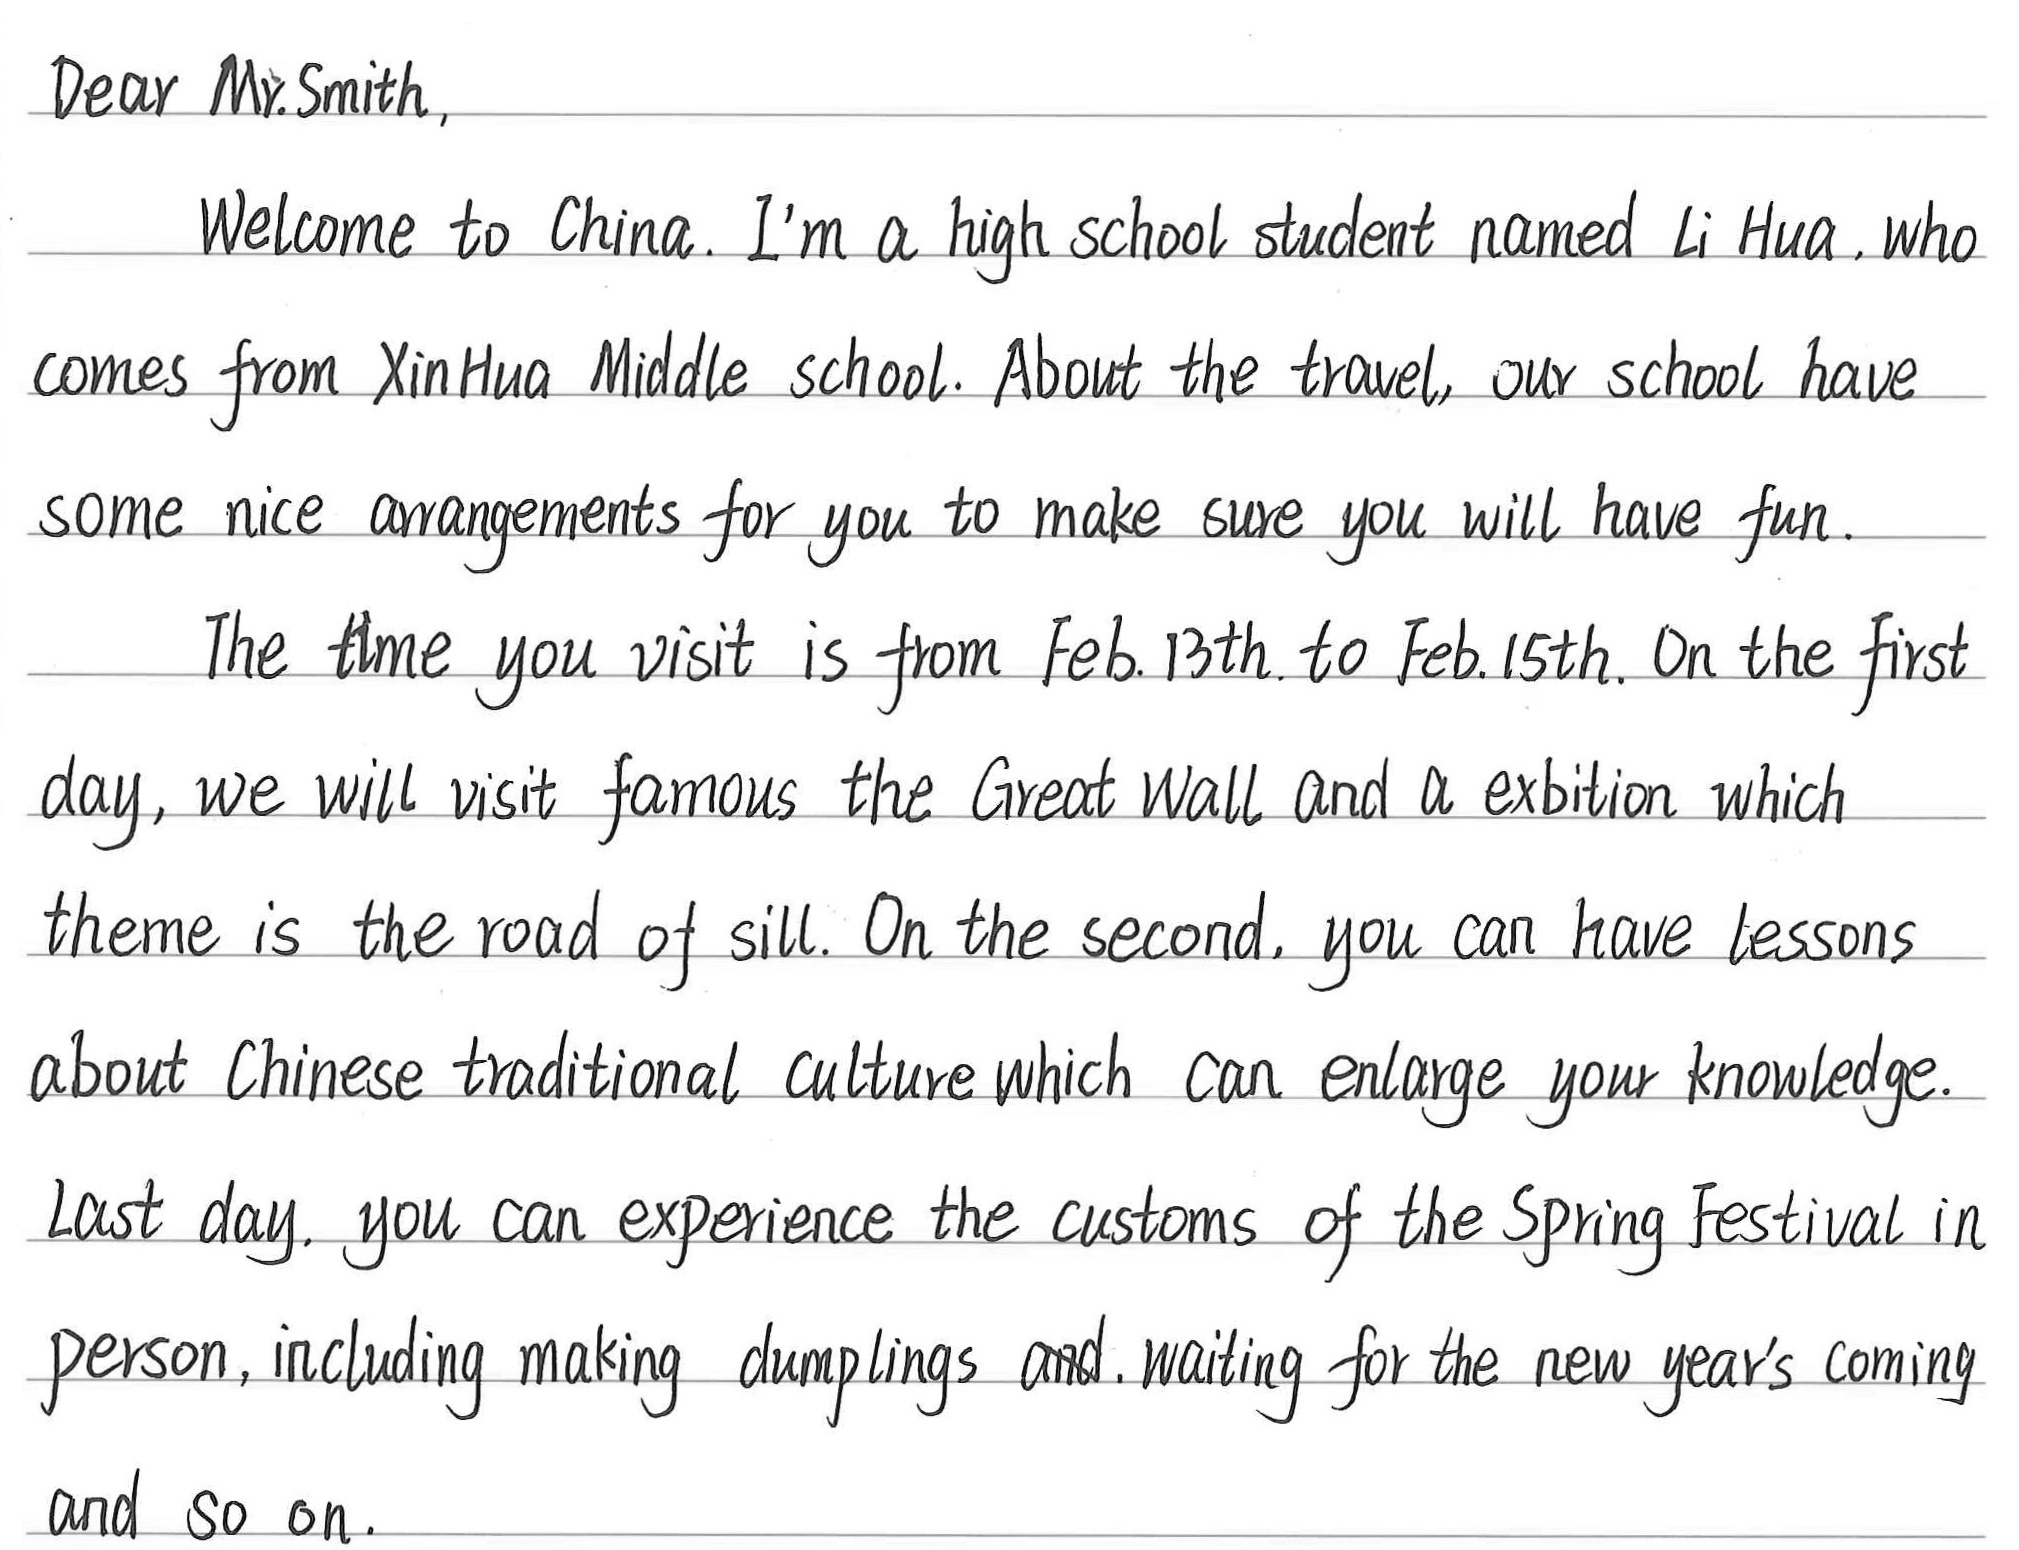 Dear Mr. Smith,
Welcome to China. I'm a high school student named Li Hua, who
comes from XinHua Middle school. About the travel, our school have
some nice arrangements for you to make sure you will have fun.
The time you visit is from Feb. 13th. to Feb. 15th. On the first
day, we will visit famous the Great Wall and a exbition which
theme is the road of sill. On the second, you can have lessons
about Chinese traditional culture which can enlarge your knowledge.
Last day, you can experience the customs of the Spring Festival in
person, including making dumplings and. waiting for the new year's coming
and so on.